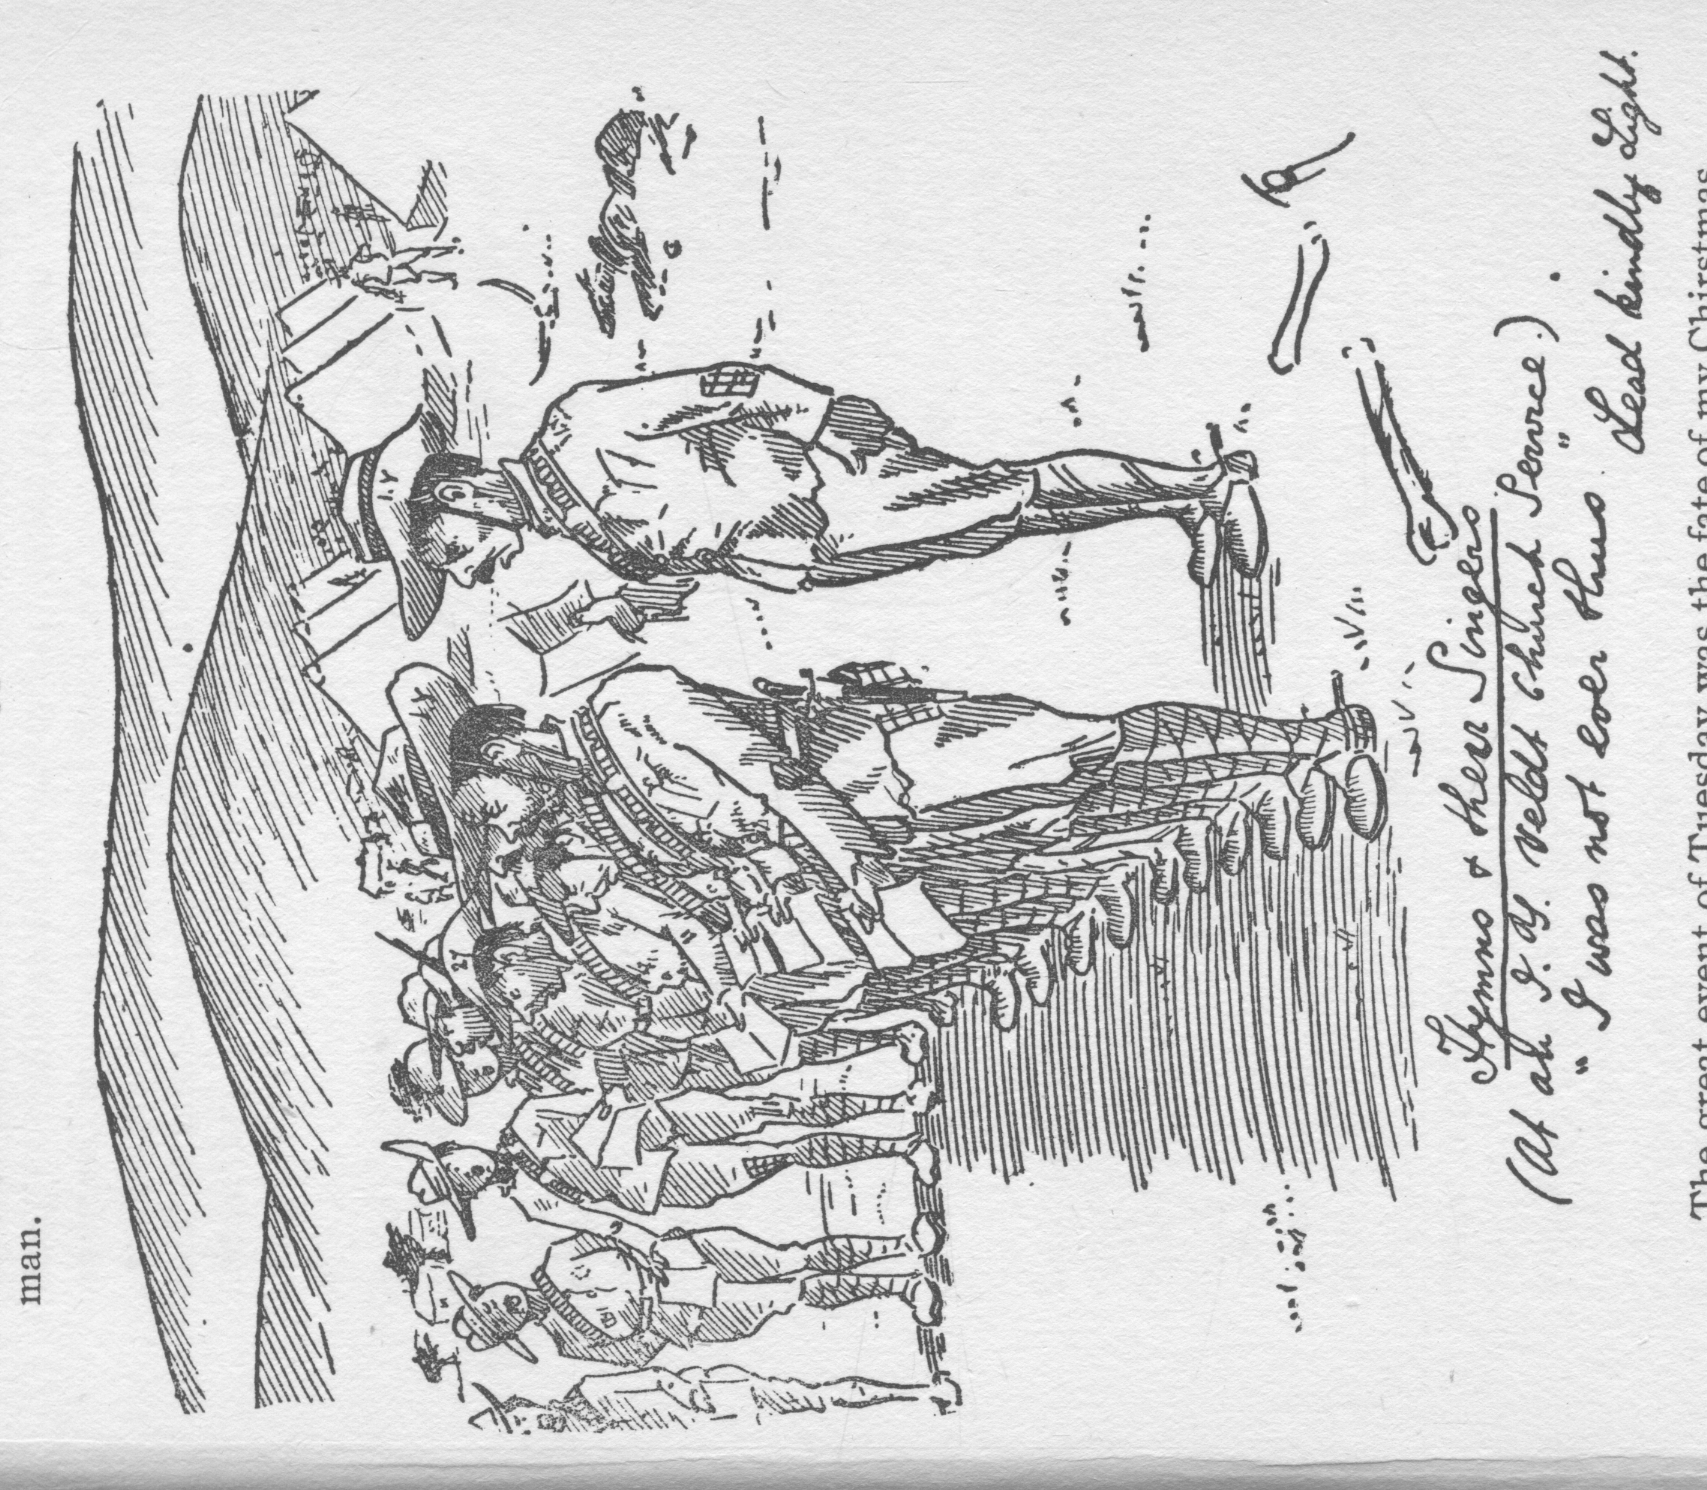 man.
I.Y
27
Hymns & their Singers
(At an I. Y. Veldt Church Service.)
"I was not ever thus". Lead kindly Light.
The great event of Tuesday was the fête of my Chirstmas